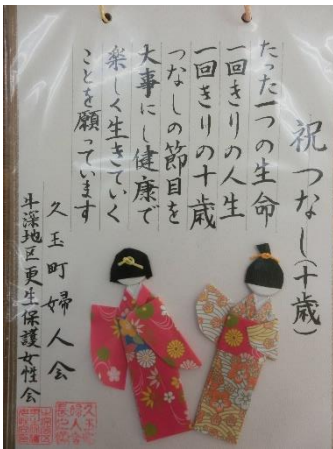 祝つなし(十歳)
たった一つの生命
一回きりの人生
一回きりの十歳
つなしの節目を
大事にし健康で
楽しく生きていく
ことを願っています
久玉町婦人会
牛深地区更生保護女性会